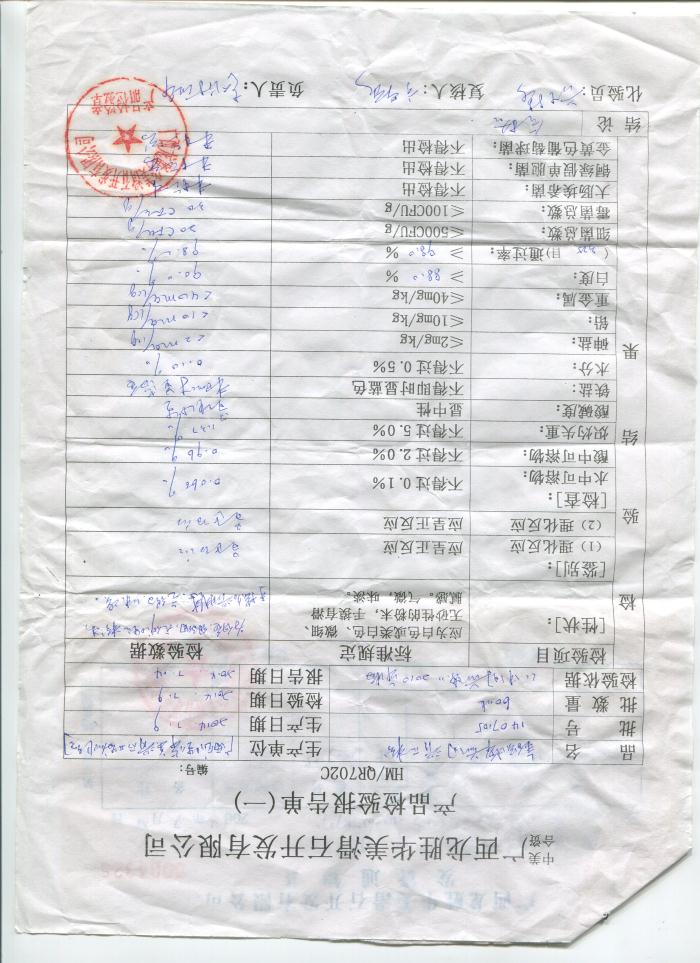 中美合资 广西龙胜华美滑石开发有限公司
产品检验报告单(一)
HM/QR702C 编号:
品 名 生产单位
批 号 1407105 生产日期 2014 7. 9
批 数 量 60吨 检验日期 2014 7. 9
检验依据 报告日期 2014 7. 14
检验项目 标准规定 检验数据
检 验 结 果
[性状]: 应为白色或类白色、微细、无砂性的粉末,手摸有滑腻感。气微,味淡。
[鉴别]:
(1)理化反应 应呈正反应
(2)理化反应 应呈正反应
[检查]:
水中可溶物: 不得过0.1% 0.068 %
酸中可溶物: 不得过2.0% 0.96 %
炽灼失重: 不得过5.0% 1.37 %
酸碱度: 显中性
铁盐: 不得即时显蓝色
水分: 不得过0.5% 0.10 %
砷盐: ≤2mg/kg <2 mg/kg
铅: ≤10mg/kg <10 mg/kg
重金属: ≤40mg/kg <40 mg/kg
白度: ≥ 88.0 % 90.0 %
( 325 目)通过率: ≥ 98.0 % 98.2 %
细菌总数: ≤500CFU/g 20 CFU/g
霉菌总数: ≤100CFU/g 30 CFU/g
大肠埃希菌 不得检出
铜绿假单胞菌: 不得检出
金黄色葡萄球菌: 不得检出
结 论 合格
化验员: 复核人: 负责人:
产品检验章